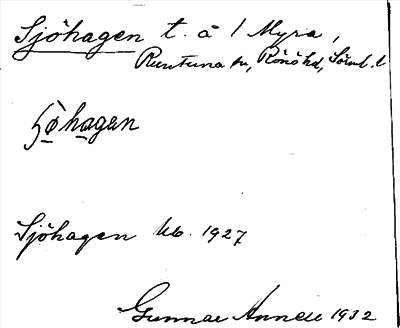 Sjöhagen t. å 1 Myra,
Runtuna sn, Rönö hd, Söml. l
hagen
Sjöhagen Kb. 1927
Gunnar Annell 1932